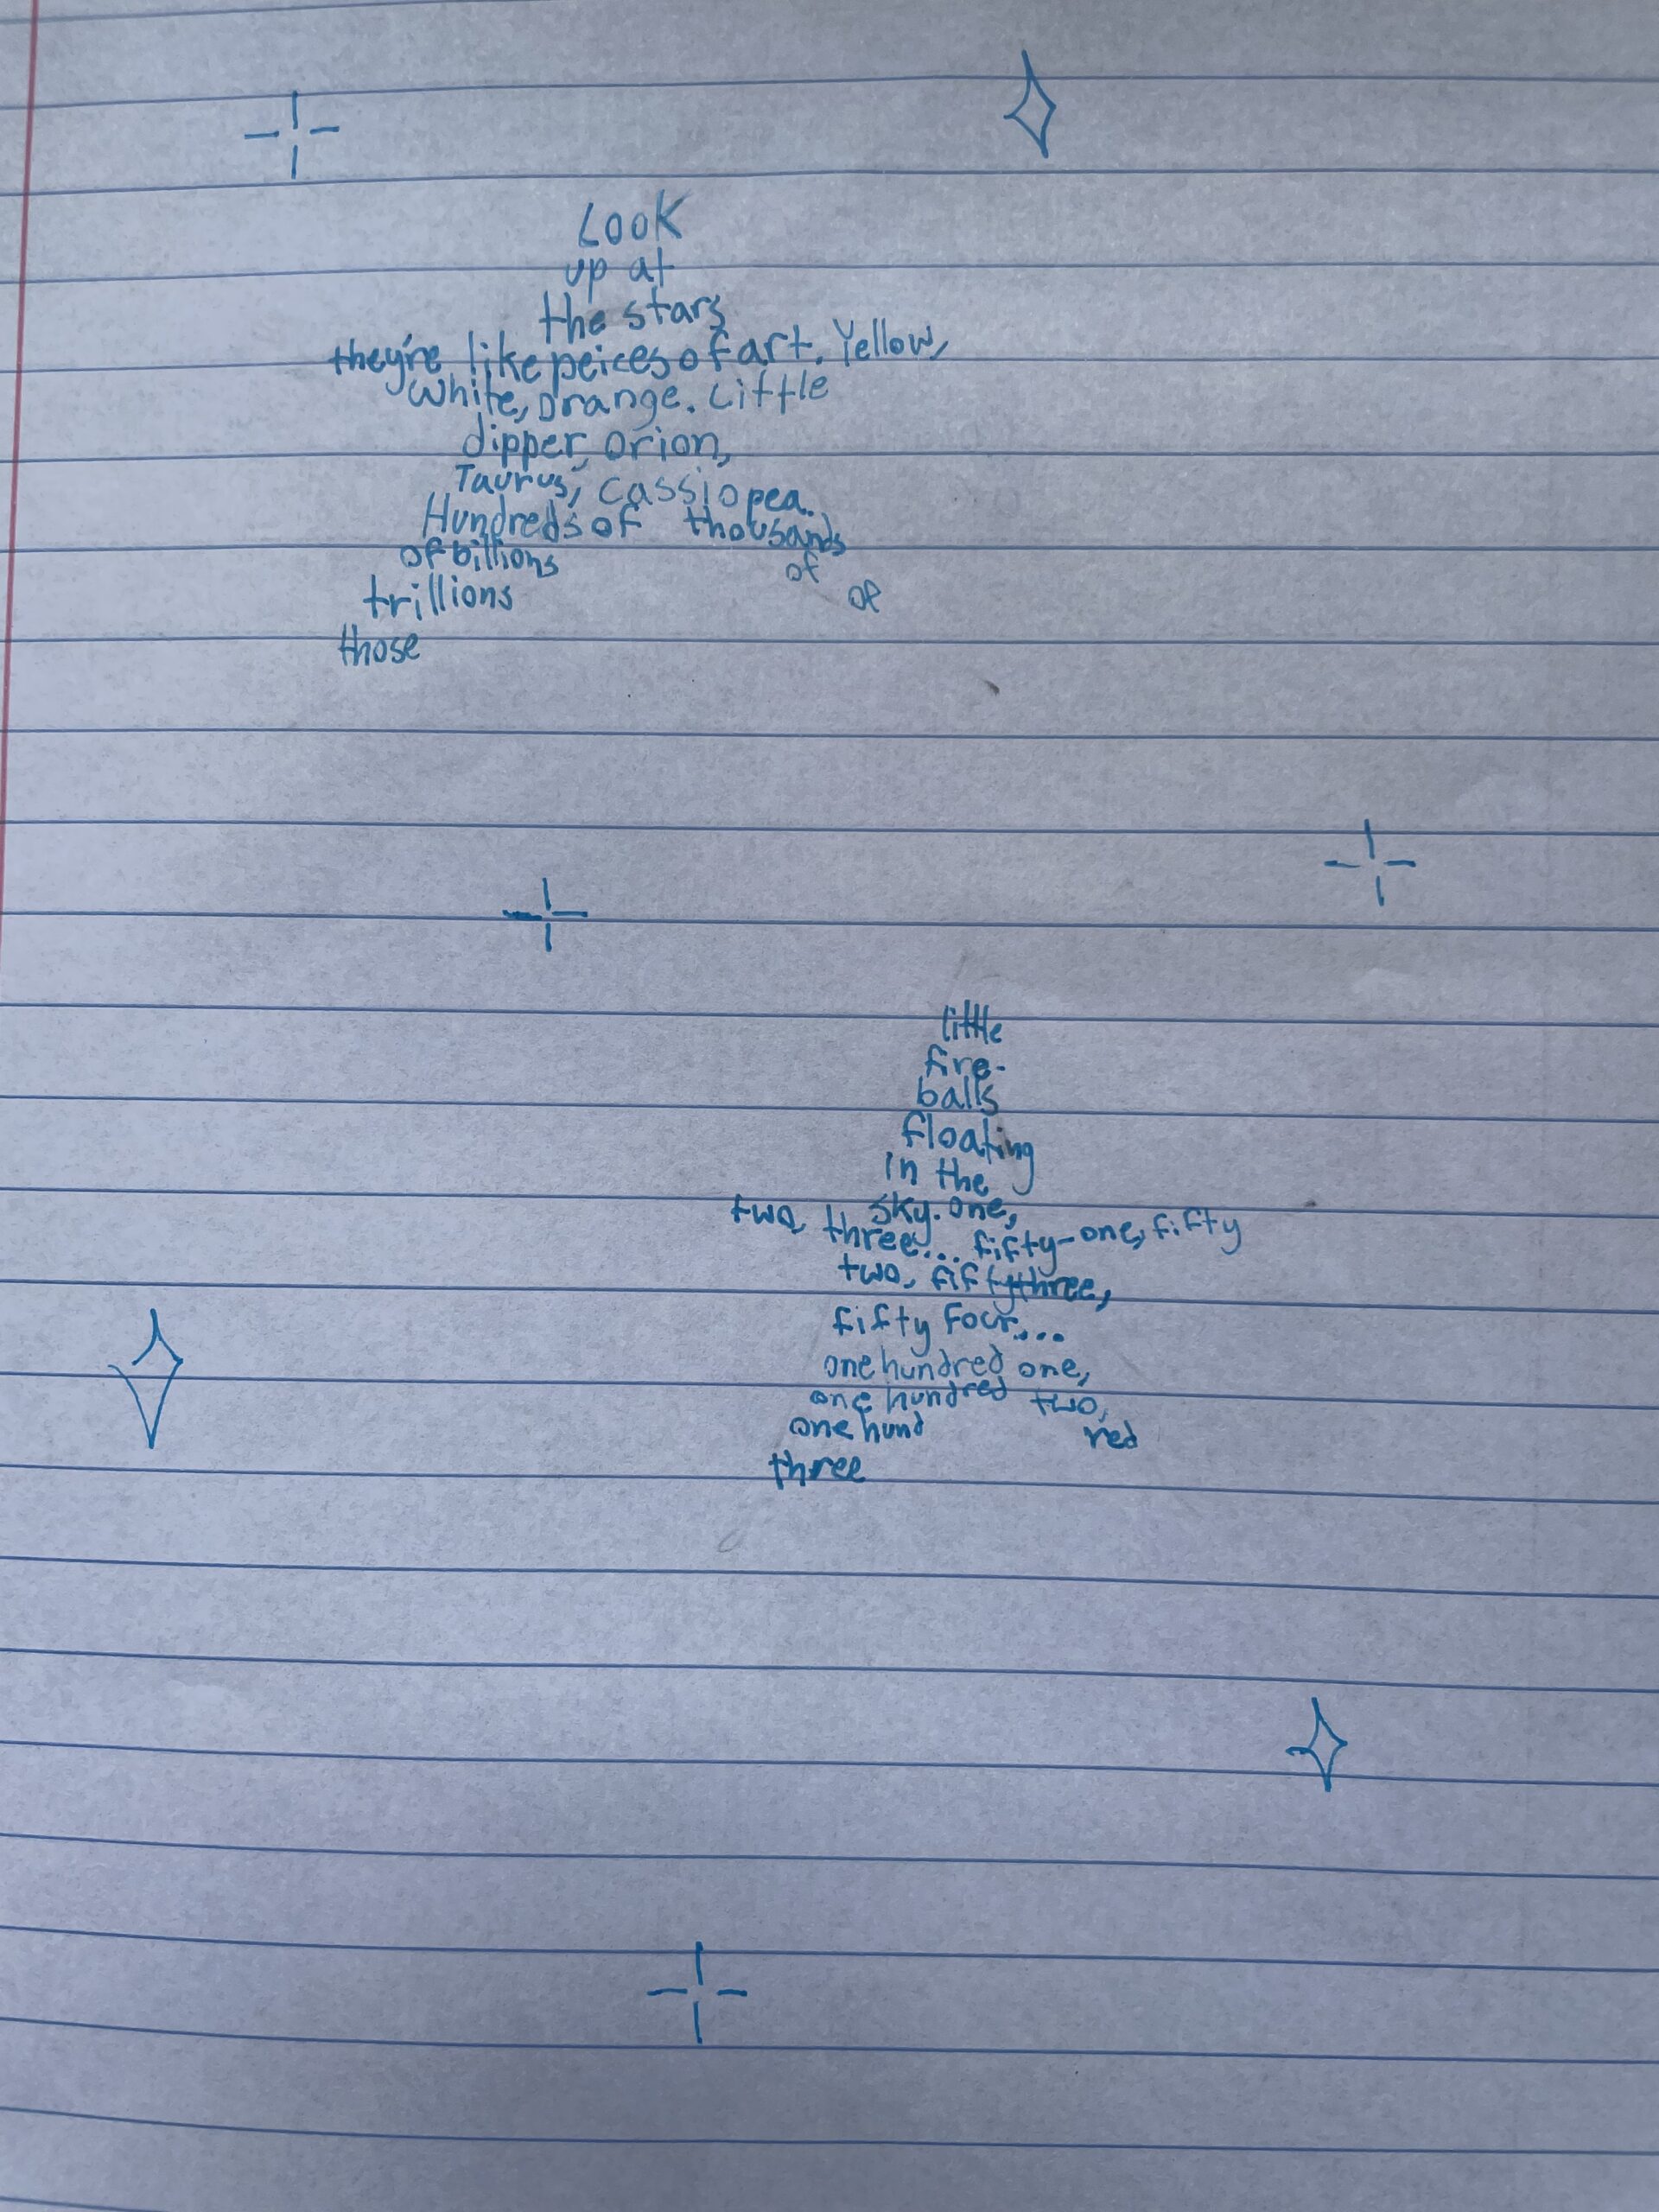 Look
up at
the stars
they're like peices of art. Yellow,
White, orange. Little
dipper, orion,
Taurus, cassiopea.
Hundreds of thousands
of billions of
trillions of
those
little
fire-
balls
floating
in the
sky. one,
two, three... fifty-one, fifty
two, fiftythree,
fifty four....
one hundred one,
one hundred two,
one hund red
three